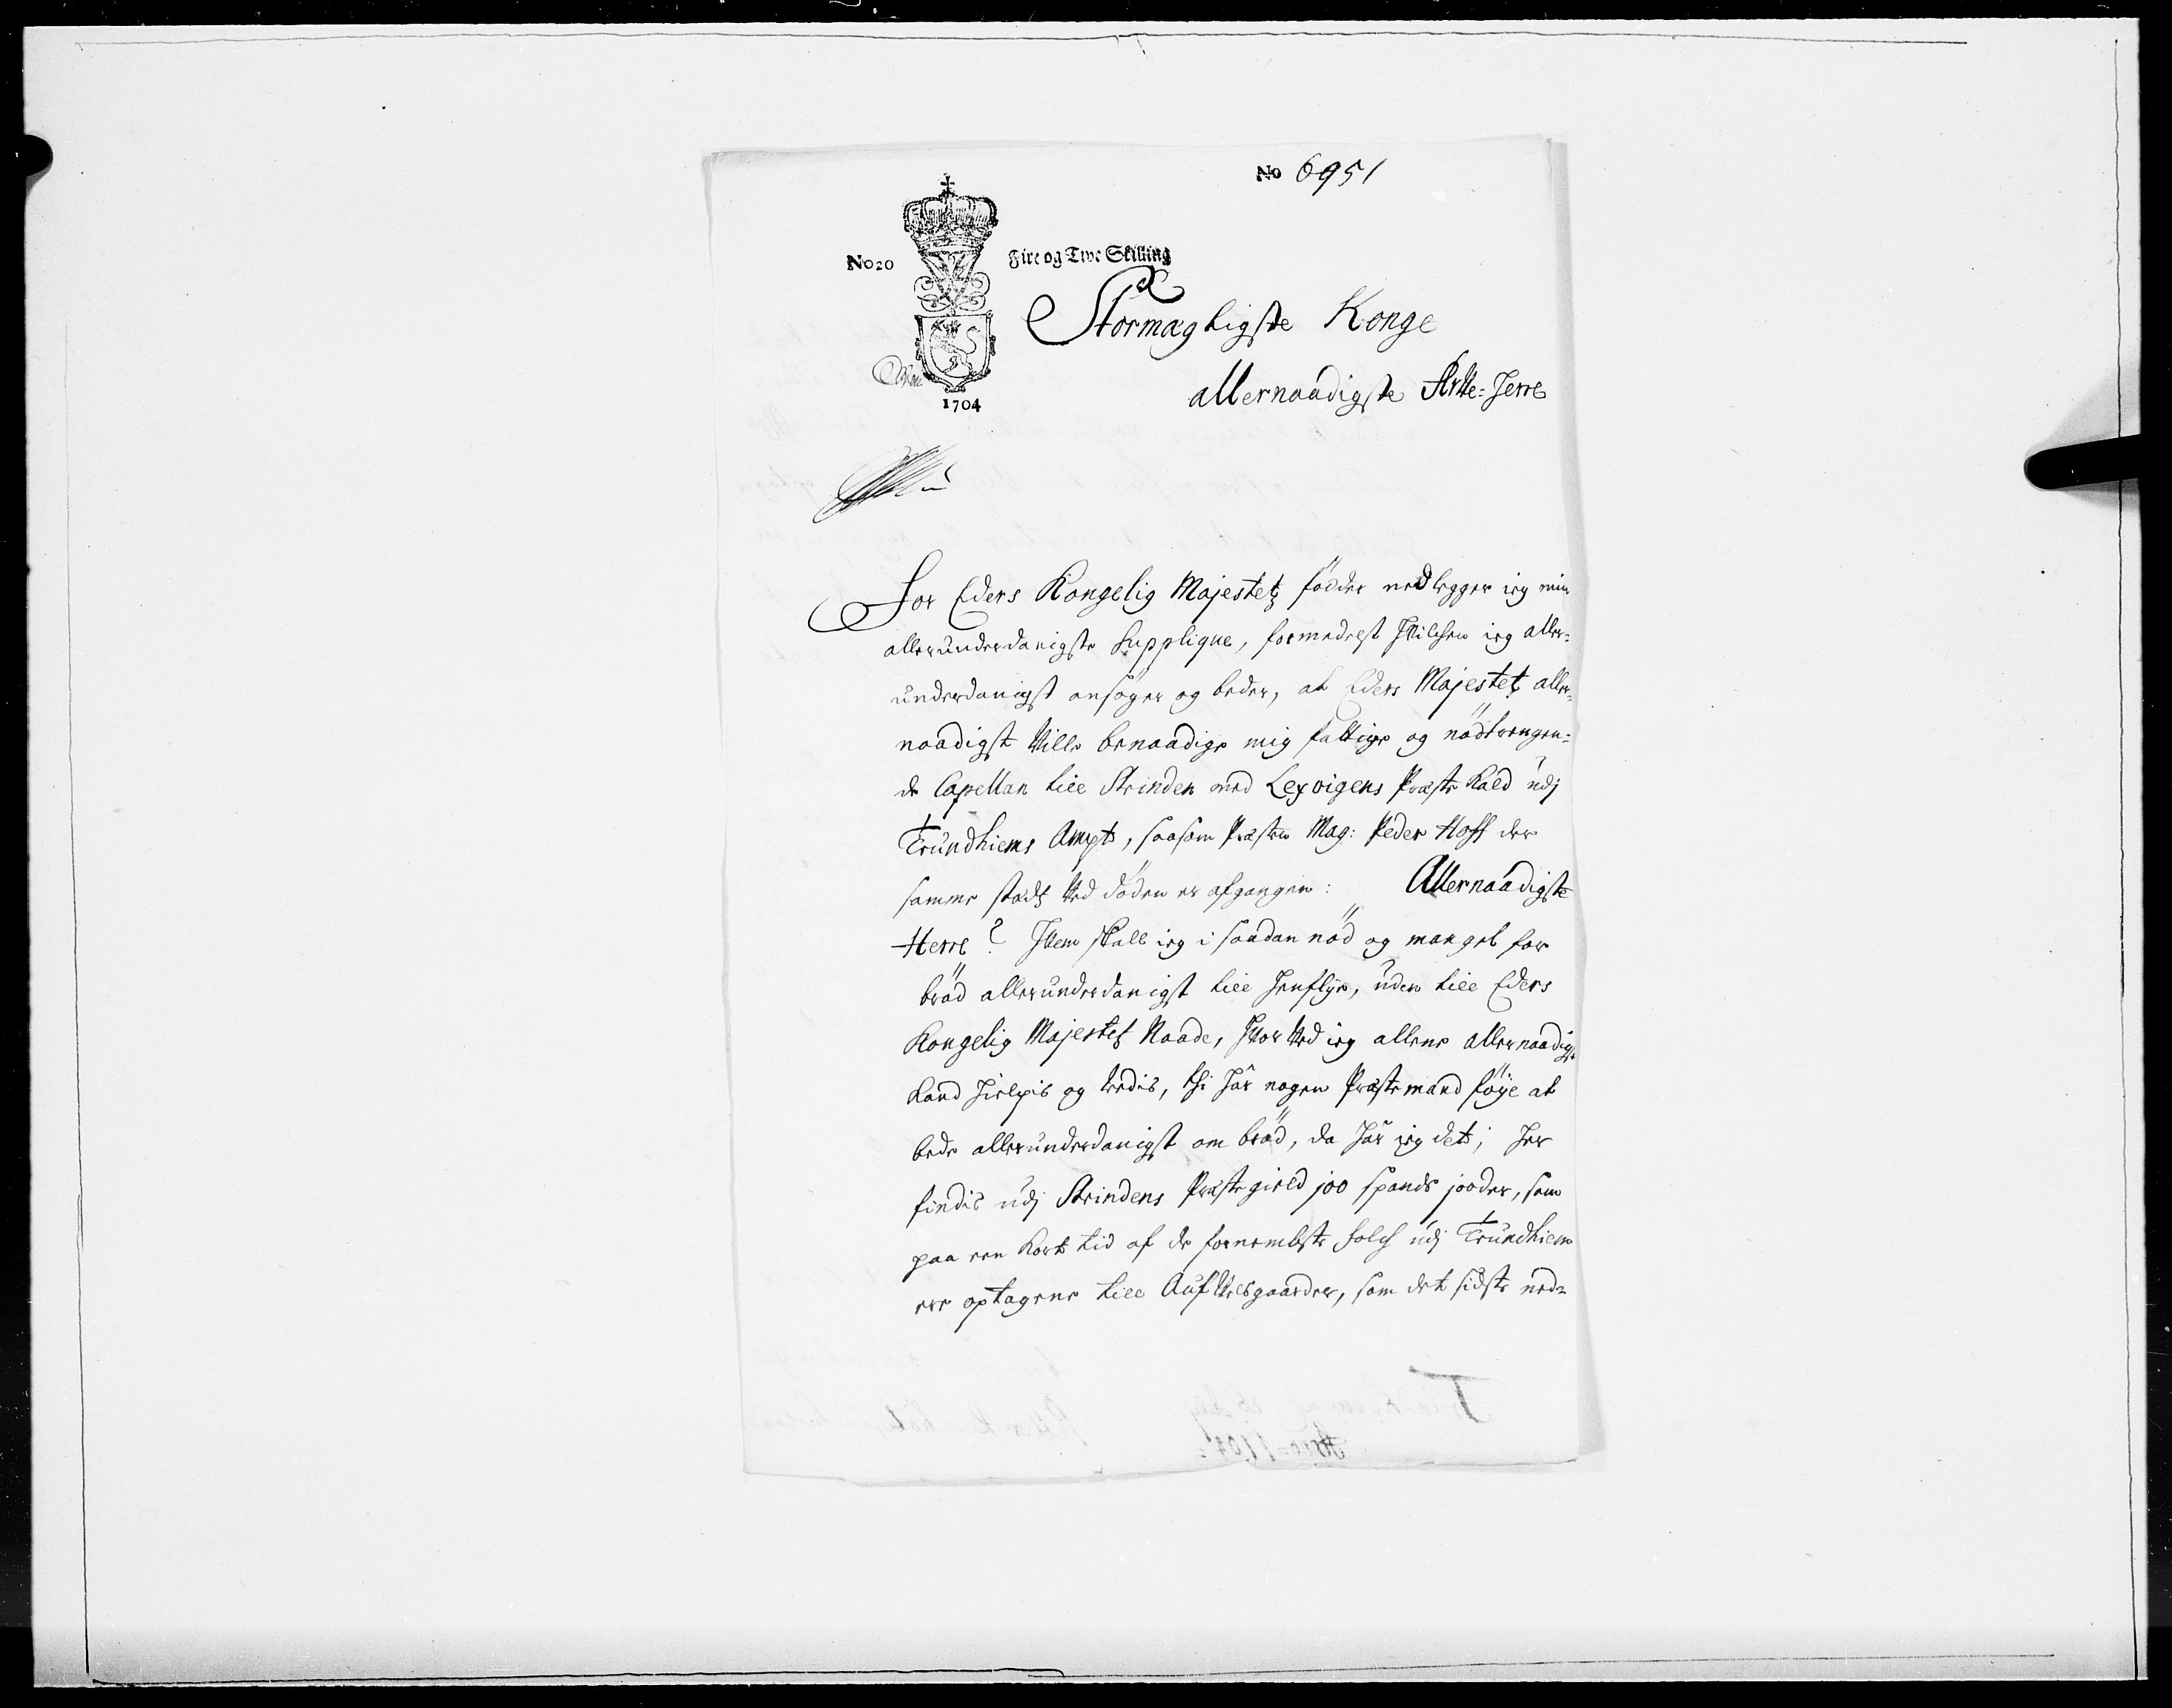 No 6951
No 20 Fire og Tive Skilling
1704
Stormægtigste Konge
allernaadigste Arffve-Herre
For Eders Kongelig Majestetz födder nedlegger ieg min
allerunderdanigste Supplique, formedelst Hvilchen ieg aller-
underdanigst ansöger og beder, at Eders Majestet aller-
naadigst Ville benaadige mig fattige og nödtrengen-
de Capellan till Strinden med Lexvigens Præste Kald udj
Trundhiems Ampt, saasom Præsten Mag: Peder Hoff der
samme stædz Ved döden er afgangen: Allernaadigste
Herre? Hvem skall ieg i saadan nöd og mangel for
bröd allerunderdanigst till Henflye, uden till Eders
Kongelig Majestet Naade, Hvor Ved ieg allene allernaadigst
Kand Hielpis og reddis, thi Hår nogen Præstemand föye at
bede allerunderdanigst om bröd, da Hår jeg det; Her
findis udj Strindens Præstegield 100 spands jorder, som
paa een Kort tid af de fornembste folch udj Trundhiem
ere optagene till Aufvelsgaarder, som det sidste ned-